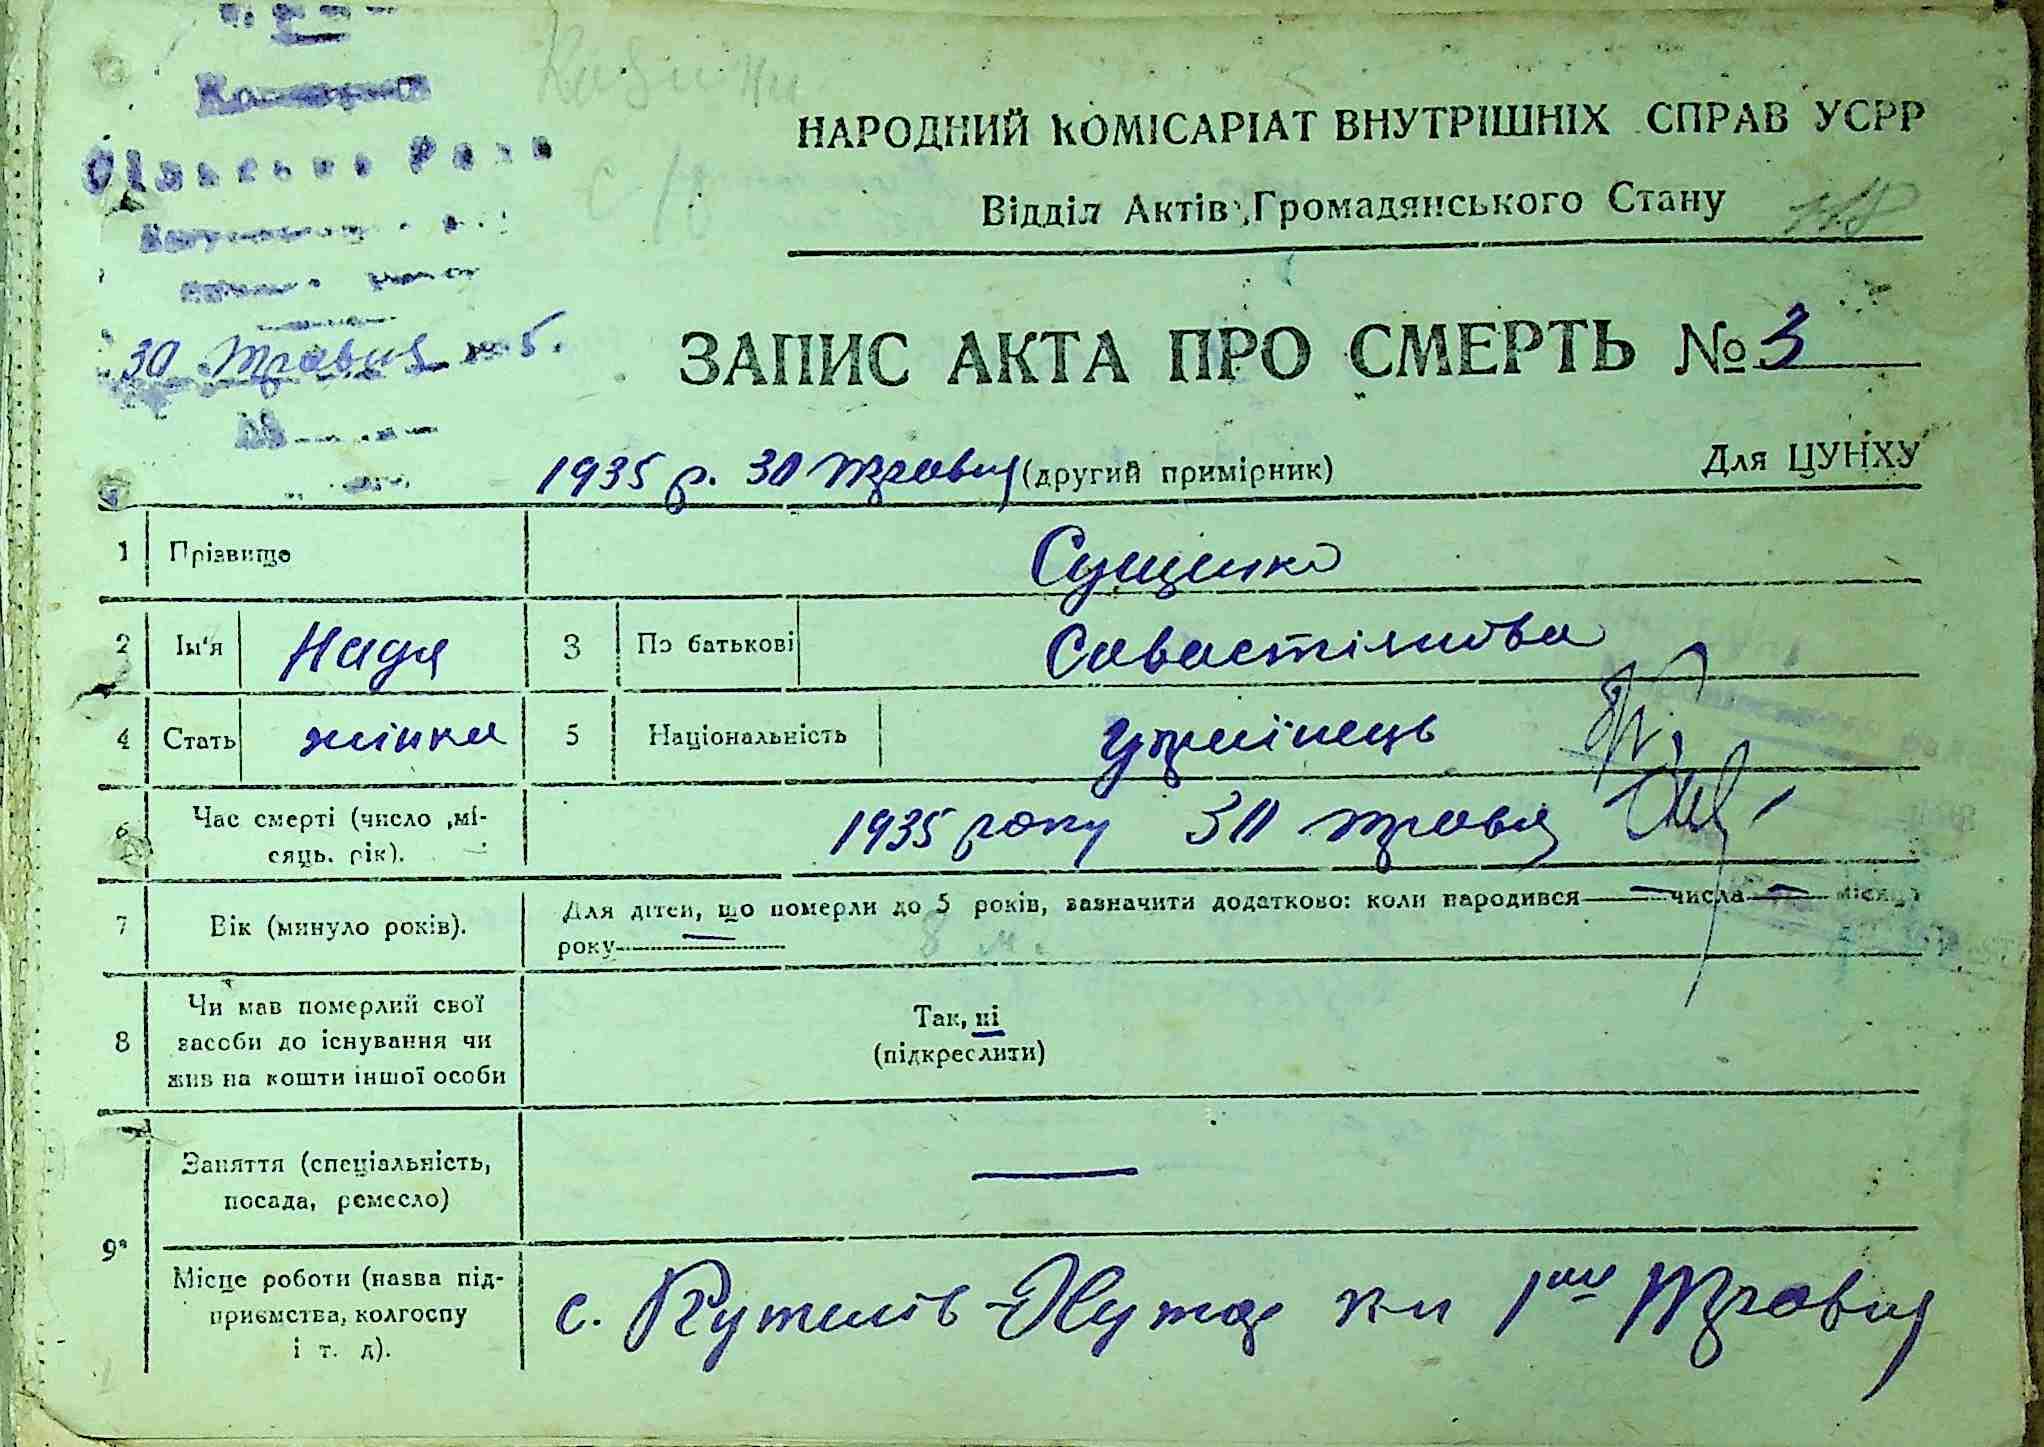 Сільська Рада
НАРОДНИЙ КОМІСАРІАТ ВНУТРІШНІХ СПРАВ УСРР
Відділ Актів Громадянського Стану
30 Травня 5.
ЗАПИС АКТА ПРО СМЕРТЬ № 3
1935 р. 30 Травня (другий примірник) Для ЦУНХУ
1 Прізвище Сущенко
2 Ім'я Надя 3 По батькові Савастіянова
4 Стать жінка 5 Національність украінець
6 Час смерті (число, мі-
сяць. рік). 1935 року 30 травня
7 Вік (минуло років). Для дітей, що померли до 5 років, зазначити додатково: коли народився — числа — місяця
року — 8 м.
8 Чи мав померлий свої
засоби до існування чи
жив на кошти іншої особи
Так, ні
(підкреслити)
9 Заняття (спеціальність,
посада, ремесло) —
Місце роботи (назва під-
приємства, колгоспу
і т. д).
с. Кутелів-Хутор 1ше Травня